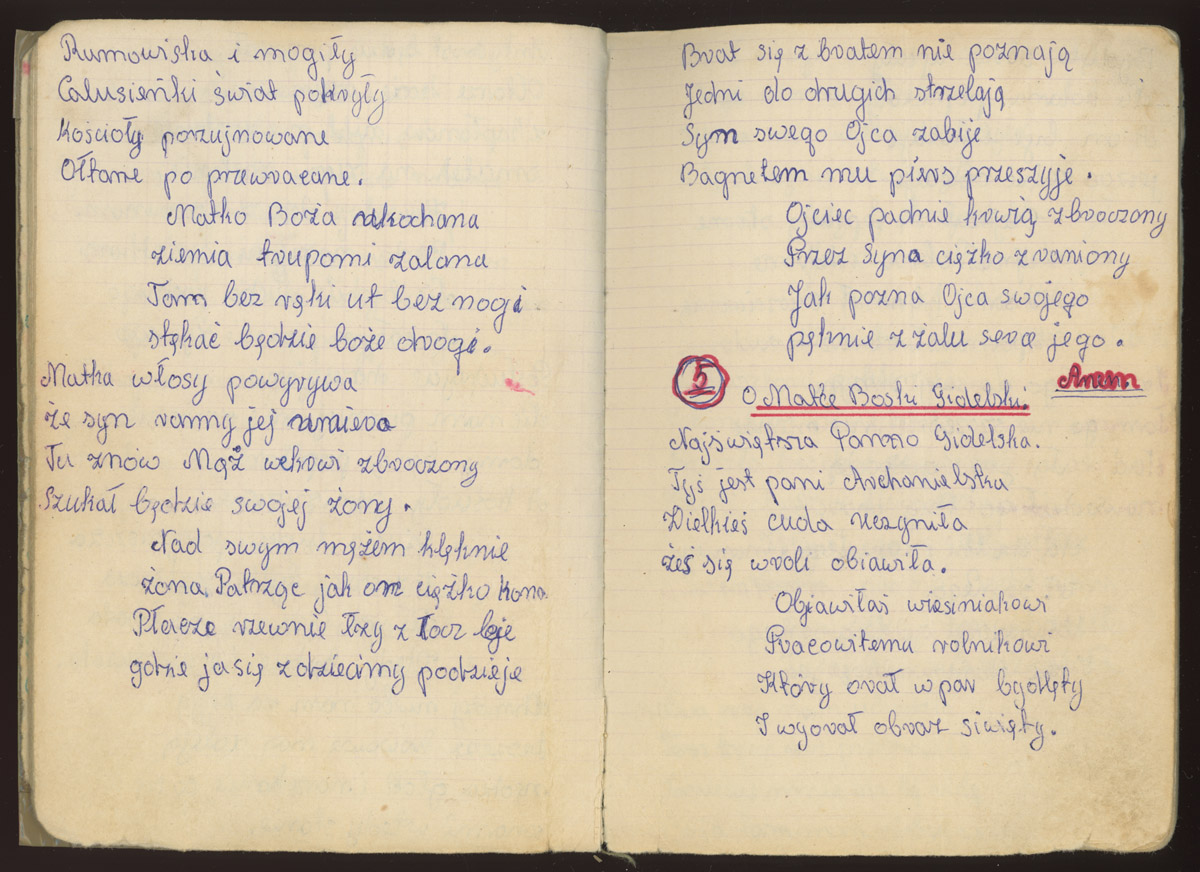 Rumowiska i mogiły
Calusieńki świat pokryły
Kościoły porzujnowane
Ołtarze po przewracane.
Matko Boża ukochana
ziemia trupami zalana
Tam bez ręki ut bez nogi
stękać będzie boże drogi.
Matka włosy powyrywa
że syn ranny jej umiera
Tu znów Mąż wekrwi zbroczony
Szukał będzie swojej żony.
Nad swym mężem klęknie
żona. Patrząc jak on ciężko kona
Płacze rzewnie łzy z łocz leje
gdzie ja się zdziećmy podzieje
Brat się z bratem nie poznają
Jedni do drugich strzelają
Sym swego Ojca zabije
Bagnetem mu pierś przeszyje.
Ojciec padnie krwią zbroczony
Przez Syna ciężko zraniony
Jak pozna Ojca swojego
pęknie z żalu serce jego.
Amen
5 O Matce Boski Gidelski.
Najświętsza Panno Gidelska.
Tyś jest pani Archanielska
Wielkieś cuda uczyniła
żeś się wroli obiawiła.
Objawiłaś wiesiniakowi
Pracowitemu rolnikowi
Który orał wpar bydlęty
I wyorał obraz siwięty.